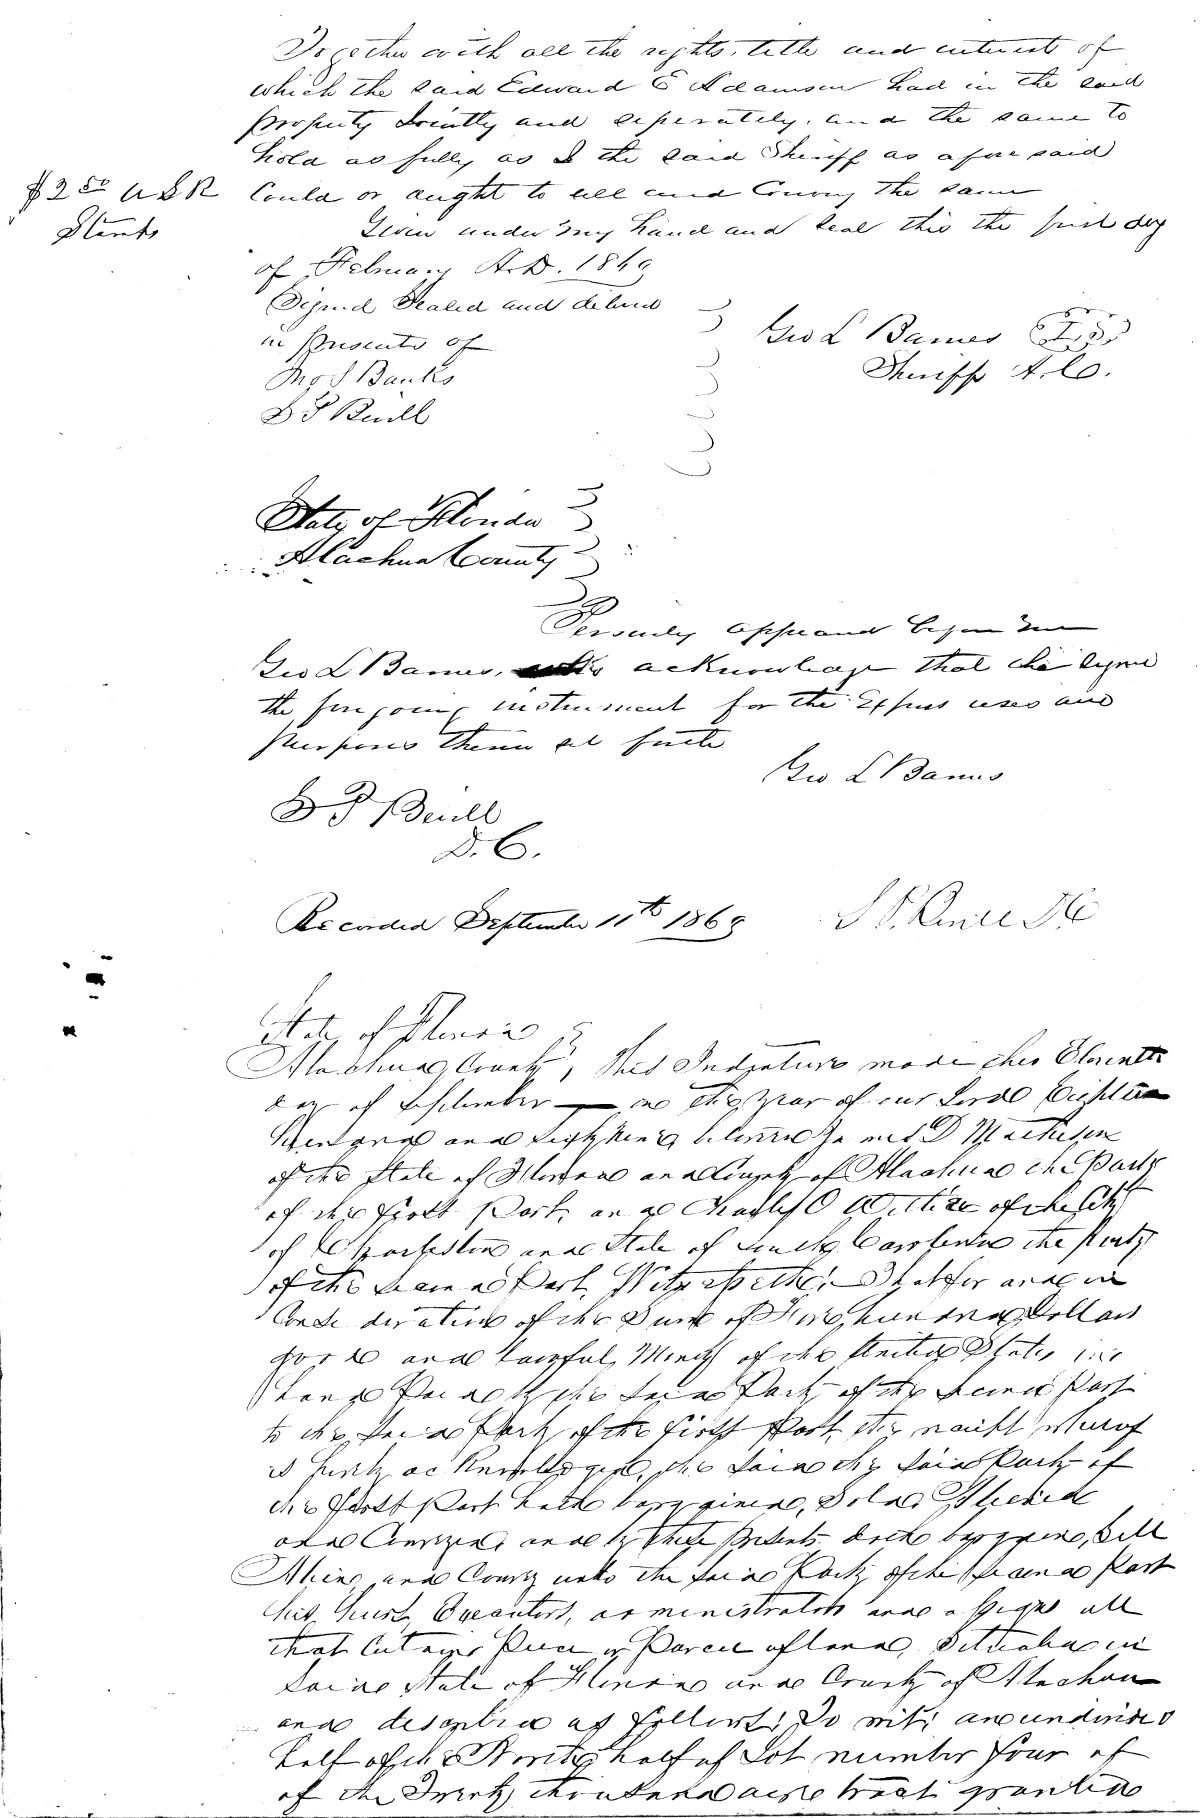 Together with all the rights, title and interest of
which the said Edward E Adamson had in the said
property Jointly and seperately, and the same to
hold as fully as I the said Sheriff as afore said
$2 50 U S R Could or aught to sell and Convey the same
Stamps Given under my hand and seal this the first day
of February A.D. 1869
Signed Sealed and delivered
in presents of
Geo L Barnes
Sheriff A. Co.
Banks
State of Florida
Alachua County
Personely appeared before me
Geo L Barnes, acknowledge that he signed
the foregoing instrument for the Express uses and
purposes therein set forth
Geo L Barnes
D. C.
Recorded September 11th 1869
State of Florida
Alachua County, This Indenture made this Eleventh
day of September in the year of our Lord Eighteen
hundred and Sixty nine between D
of the State of Florida and County of Alachua the Party
of the First Part, and Charles O of the City
of Charleston and State of South Carolina the Party
of the Second Part, Witnesseth: That for and in
Consideration of the Sum of hundred Dollars
good and lawful Money of the United States in
hand Paid by the Said Party of the Second Part
to the Said Party of the First Part, the receipt whereof
is hereby acknowledged, the Said the Said Party of
the First Part hath bargained, Sold, Aliened
and Conveyed, and by these presents doth bargain, Sell
Alien, and Convey unto the Said Party of the Second Part
his heirs, Executors, administrators and assigns all
that Certain Piece or Parcel of land, Situated in
Said State of Florida and County of Alachua
and described as follows: To wit: an undivided
half of the North half of Lot number four of
of the Twenty thousand acre tract granted